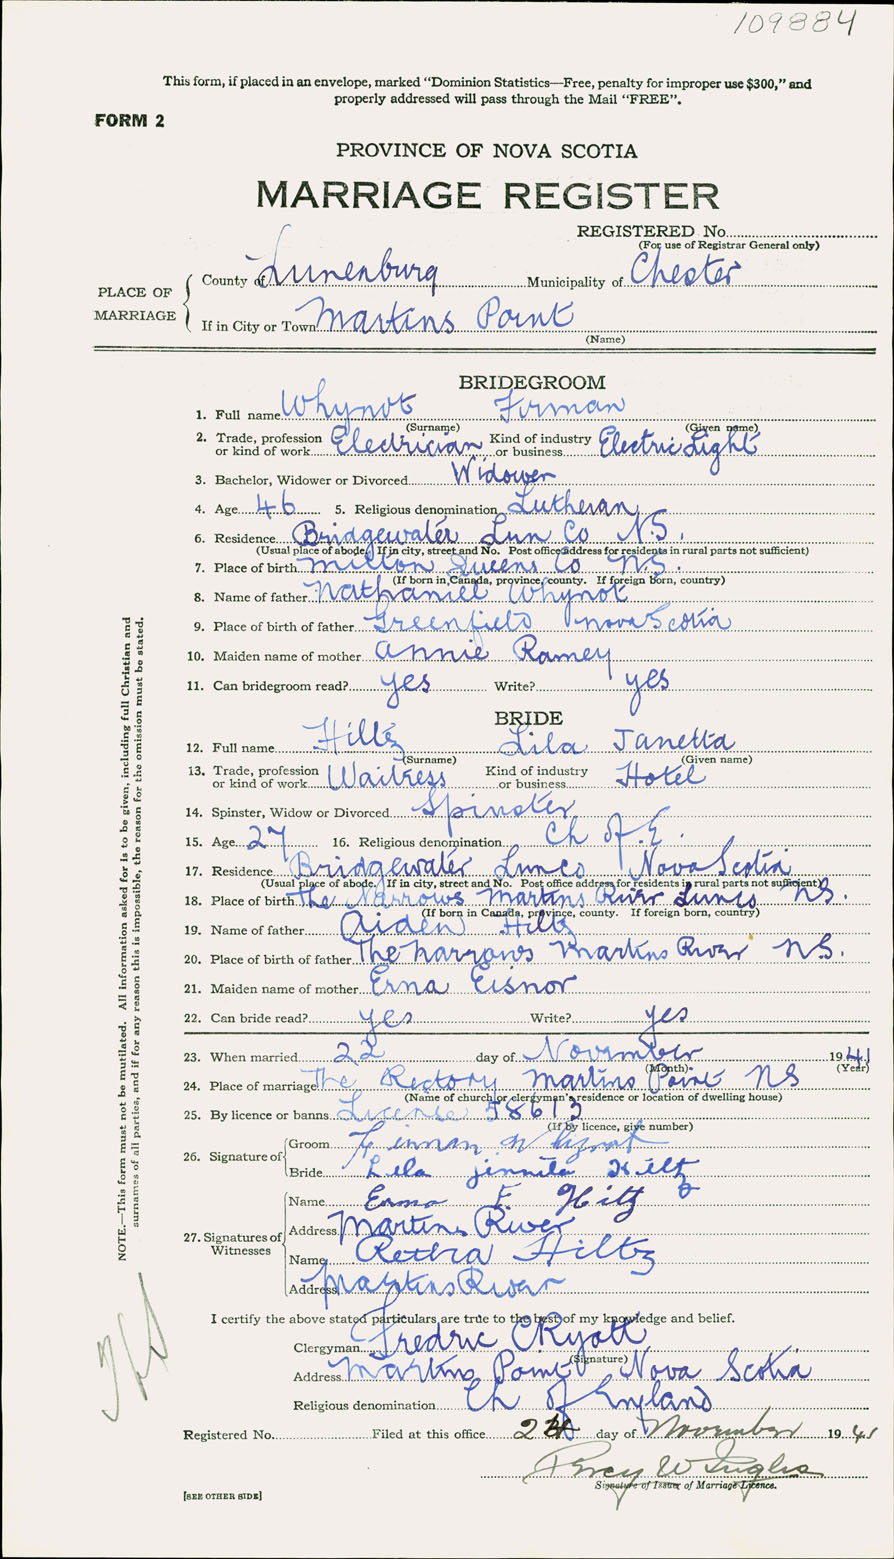 109884
This form, if placed in an envelope, marked “Dominion Statistics—Free, penalty for improper use $300,” and
properly addressed will pass through the Mail “FREE”.
FORM 2
PROVINCE OF NOVA SCOTIA
MARRIAGE REGISTER
REGISTERED No.
(For use of Registrar General only)
PLACE OF MARRIAGE
County of Lunenburg Municipality of Chester
If in City or Town Martins Point
(Name)
BRIDEGROOM
1. Full name Whynot Firman
(Surname) (Given name)
2. Trade, profession or kind of work Electrician Kind of industry or business Electric Light
3. Bachelor, Widower or Divorced Widower
4. Age 46 5. Religious denomination Lutheran
6. Residence Bridgewater Lun Co N.S.
(Usual place of abode. If in city, street and No. Post office address for residents in rural parts not sufficient)
7. Place of birth Milton Queens Co N.S.
(If born in Canada, province, county. If foreign born, country)
8. Name of father Nathaniel Whynot
9. Place of birth of father Greenfield Nova Scotia
10. Maiden name of mother Annie Ramey
11. Can bridegroom read? yes Write? yes
BRIDE
12. Full name Hiltz Lila Janetta
(Surname) (Given name)
13. Trade, profession or kind of work Waitress Kind of industry or business Hotel
14. Spinster, Widow or Divorced Spinster
15. Age 27 16. Religious denomination Ch of E.
17. Residence Bridgewater Lun Co Nova Scotia
(Usual place of abode. If in city, street and No. Post office address for residents in rural parts not sufficient)
18. Place of birth The Narrows Martins River Lun Co NS.
(If born in Canada, province, county. If foreign born, country)
19. Name of father Aiden Hiltz
20. Place of birth of father The Narrows Martins River NS.
21. Maiden name of mother Erna Eisnor
22. Can bride read? yes Write? yes
23. When married 22 day of November 1941
(Month) (Year)
24. Place of marriage The Rectory Martins Point NS
(Name of church or clergyman's residence or location of dwelling house)
25. By licence or banns License 58613
(If by licence, give number)
26. Signature of
Groom Firman Whynot
Bride Lila Hiltz
27. Signatures of Witnesses
Name Erma F. Hiltz
Address Martins River
Name Retha Hiltz
Address Martins River
I certify the above stated particulars are true to the best of my knowledge and belief.
Clergyman Fredric C Ryott
(Signature)
Address Martins Point Nova Scotia
Religious denomination Ch of England
Registered No. Filed at this office 24 day of November 1941
Percy W Inglis
Signature of Issuer of Marriage Licence.
[SEE OTHER SIDE]
NOTE.—This form must not be mutilated. All information asked for is to be given, including full Christian and
surnames of all parties, and if for any reason this is impossible, the reason for the omission must be stated.